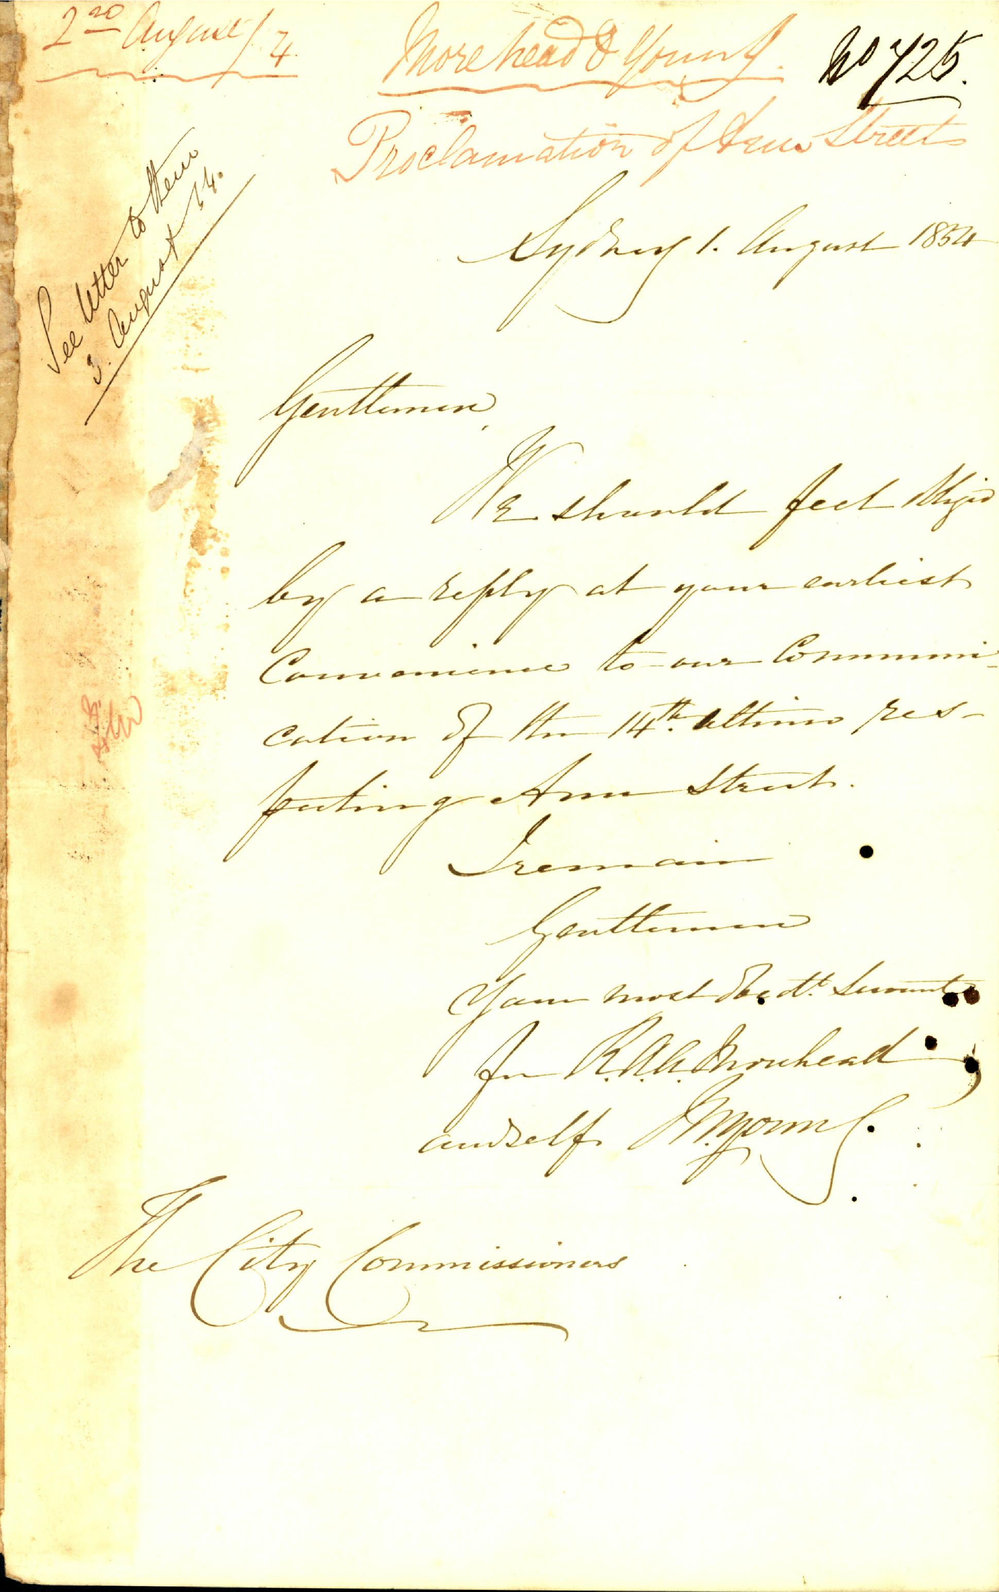 2nd August/4
Morehead & Young
No 725.
Proclamation of Ann Street
See letter to them
3. August 54.
Sydney 1. August 1854
Gentlemen,
We should feel obliged
by a reply at your earliest
Convenience to our Communi-
cation of the 14th. Ultimo res-
pecting Ann Street.
I remain
Gentlemen
Your most Obedt. Servants
for R.A.A. Morehead
and self. M. Young.
The City Commissioners